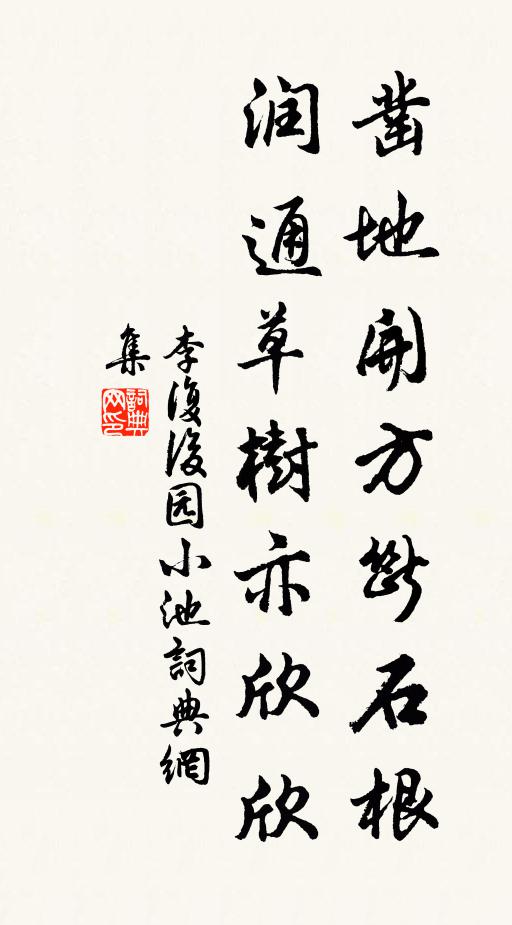 凿地開方斷石根
润通草樹亦欣欣
李復後园小池詞典網
集
詞典网印